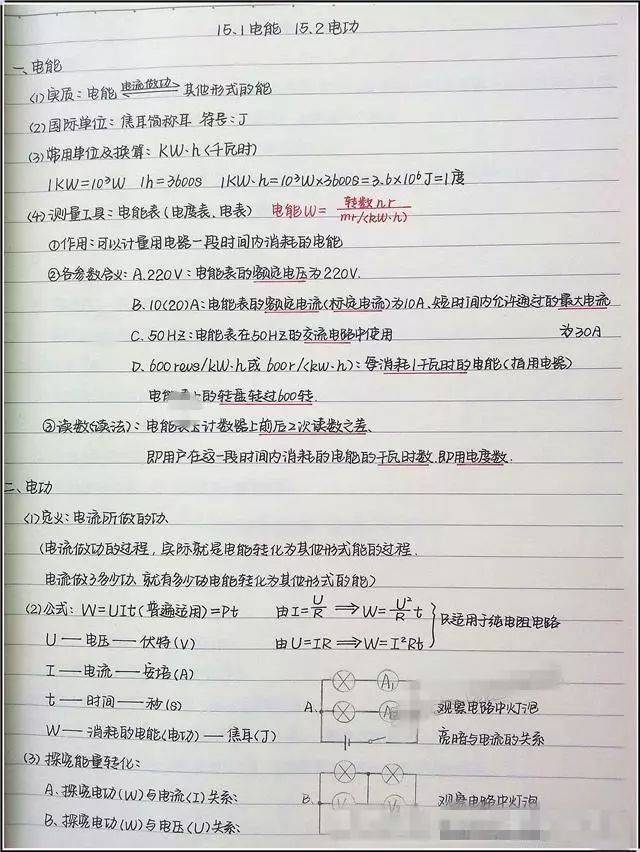 15.1电能 15.2电功
一、电能
(1)实质:电能 电流做功 其他形式的能
(2)国际单位:焦耳简称耳 符号:J
(3)常用单位及换算:KW·h(千瓦时)
1KW=10³W 1h=3600S 1KW·h=10³W×3600S=3.6×10⁶J=1度
(4)测量工具:电能表(电度表、电表) 电能W=转数nr/mr/(kW·h)
①作用:可以计量用电器一段时间内消耗的电能
②各参数含义:A.220V:电能表的额定电压为220V.
B.10(20)A:电能表的额定电流(标定电流)为10A、短时间内允许通过的最大电流
C.50HZ:电能表在50HZ的交流电路中使用 为30A
D.600revs/kW·h或600r/(kW·h):每消耗1千瓦时的电能(指用电器)
电能 上的转盘转过600转.
③读数(读法):电能表 计数器上前后2次读数之差、
即用户在这一段时间内消耗的电能的千瓦时数.即用电度数.
二、电功
(1)定义:电流所做的功、
(电流做功的过程,实际就是电能转化为其他形式能的过程.
电流做了多少功 就有多少电能转化为其他形式的能)
(2)公式:W=UIt(普遍适用)=Pt 由I=U/R ⟹W=U²/R t
U — 电压 — 伏特(V) 由U=IR⟹W=I²Rt 只适用于纯电阻电路
I — 电流 — 安培(A)
t — 时间 — 秒(s)
W — 消耗的电能(电功) — 焦耳(J)
A. A₁
观察电路中灯泡
亮暗与电流的关系
(3)探究能量转化:
A、探究电功(W)与电流(I)关系:
B、探究电功(W)与电压(U)关系:
B.
观察电路中灯泡